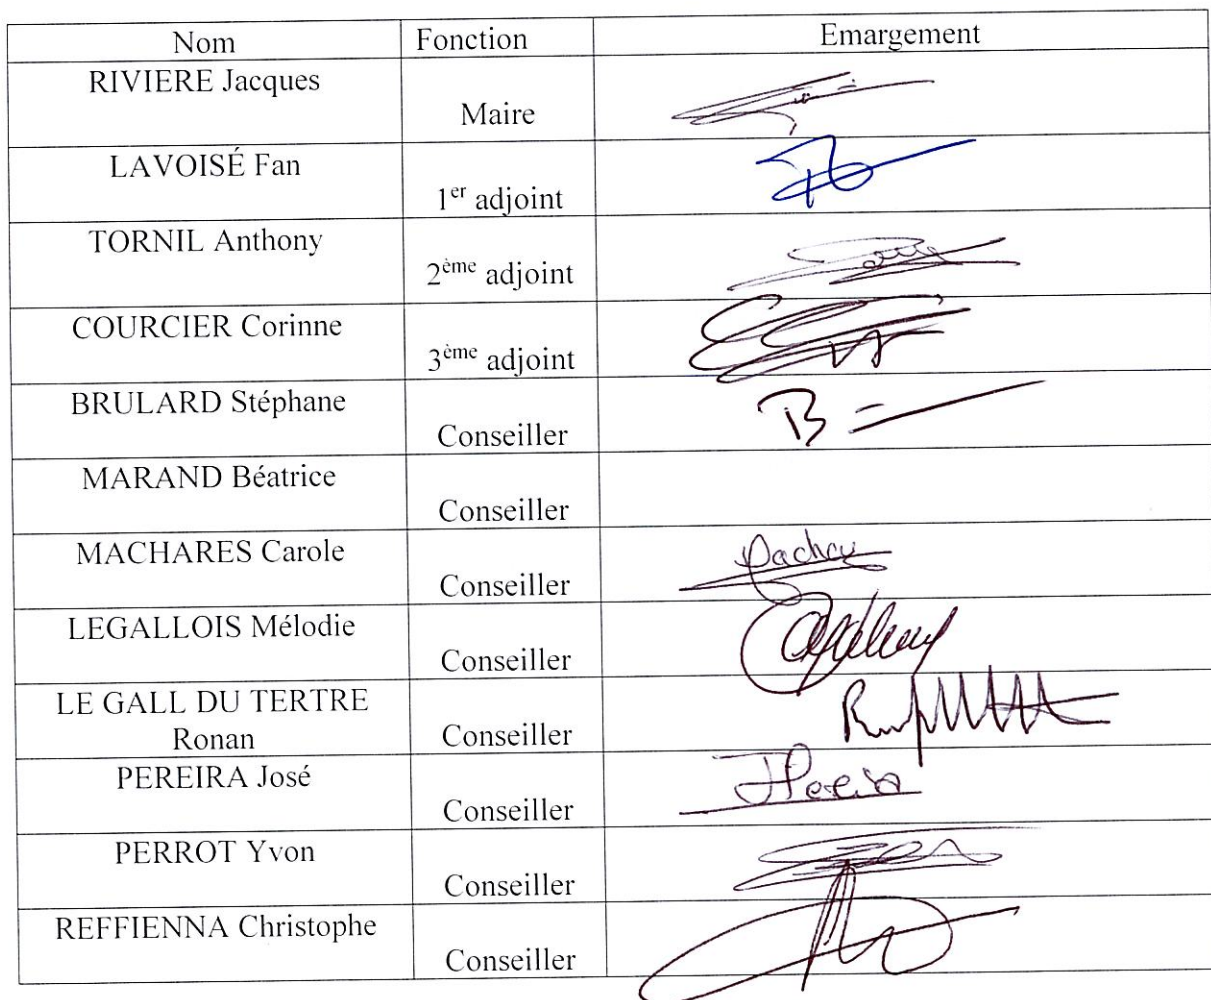 Nom Fonction Emargement
RIVIERE Jacques
Maire
LAVOISÉ Fan
1er adjoint
TORNIL Anthony
2ème adjoint
COURCIER Corinne
3ème adjoint
BRULARD Stéphane
Conseiller
MARAND Béatrice
Conseiller
MACHARES Carole
Conseiller
LEGALLOIS Mélodie
Conseiller
LE GALL DU TERTRE
Ronan
Conseiller
PEREIRA José
Conseiller
PERROT Yvon
Conseiller
REFFIENNA Christophe
Conseiller